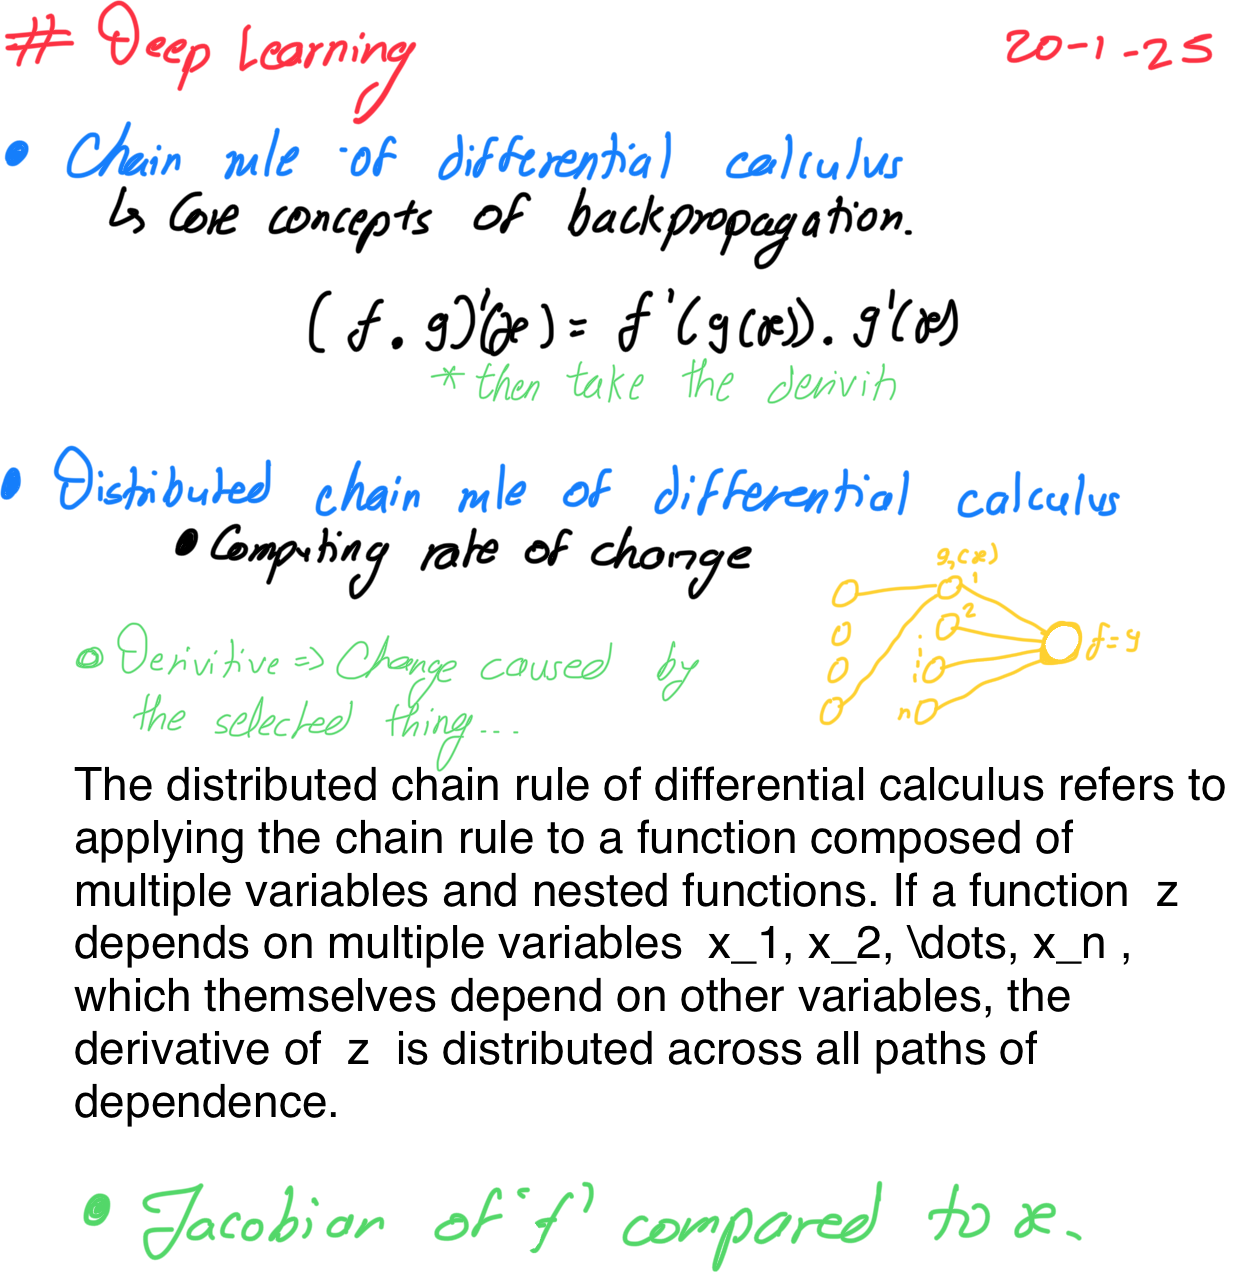 # Deep Learning 20-1-25
• Chain rule of differential calculus
↳ Core concepts of backpropagation.
(f . g)'(x) = f'(g(x)). g'(x)
* then take the derivit
• Distributed chain rule of differential calculus
• Computing rate of change
g,(x)
1
2
n
f=y
• Derivitive => Change caused by
the selected thing...
The distributed chain rule of differential calculus refers to
applying the chain rule to a function composed of
multiple variables and nested functions. If a function z
depends on multiple variables x_1, x_2, \dots, x_n ,
which themselves depend on other variables, the
derivative of z is distributed across all paths of
dependence.
• Jacobian of 'f' compared to x.